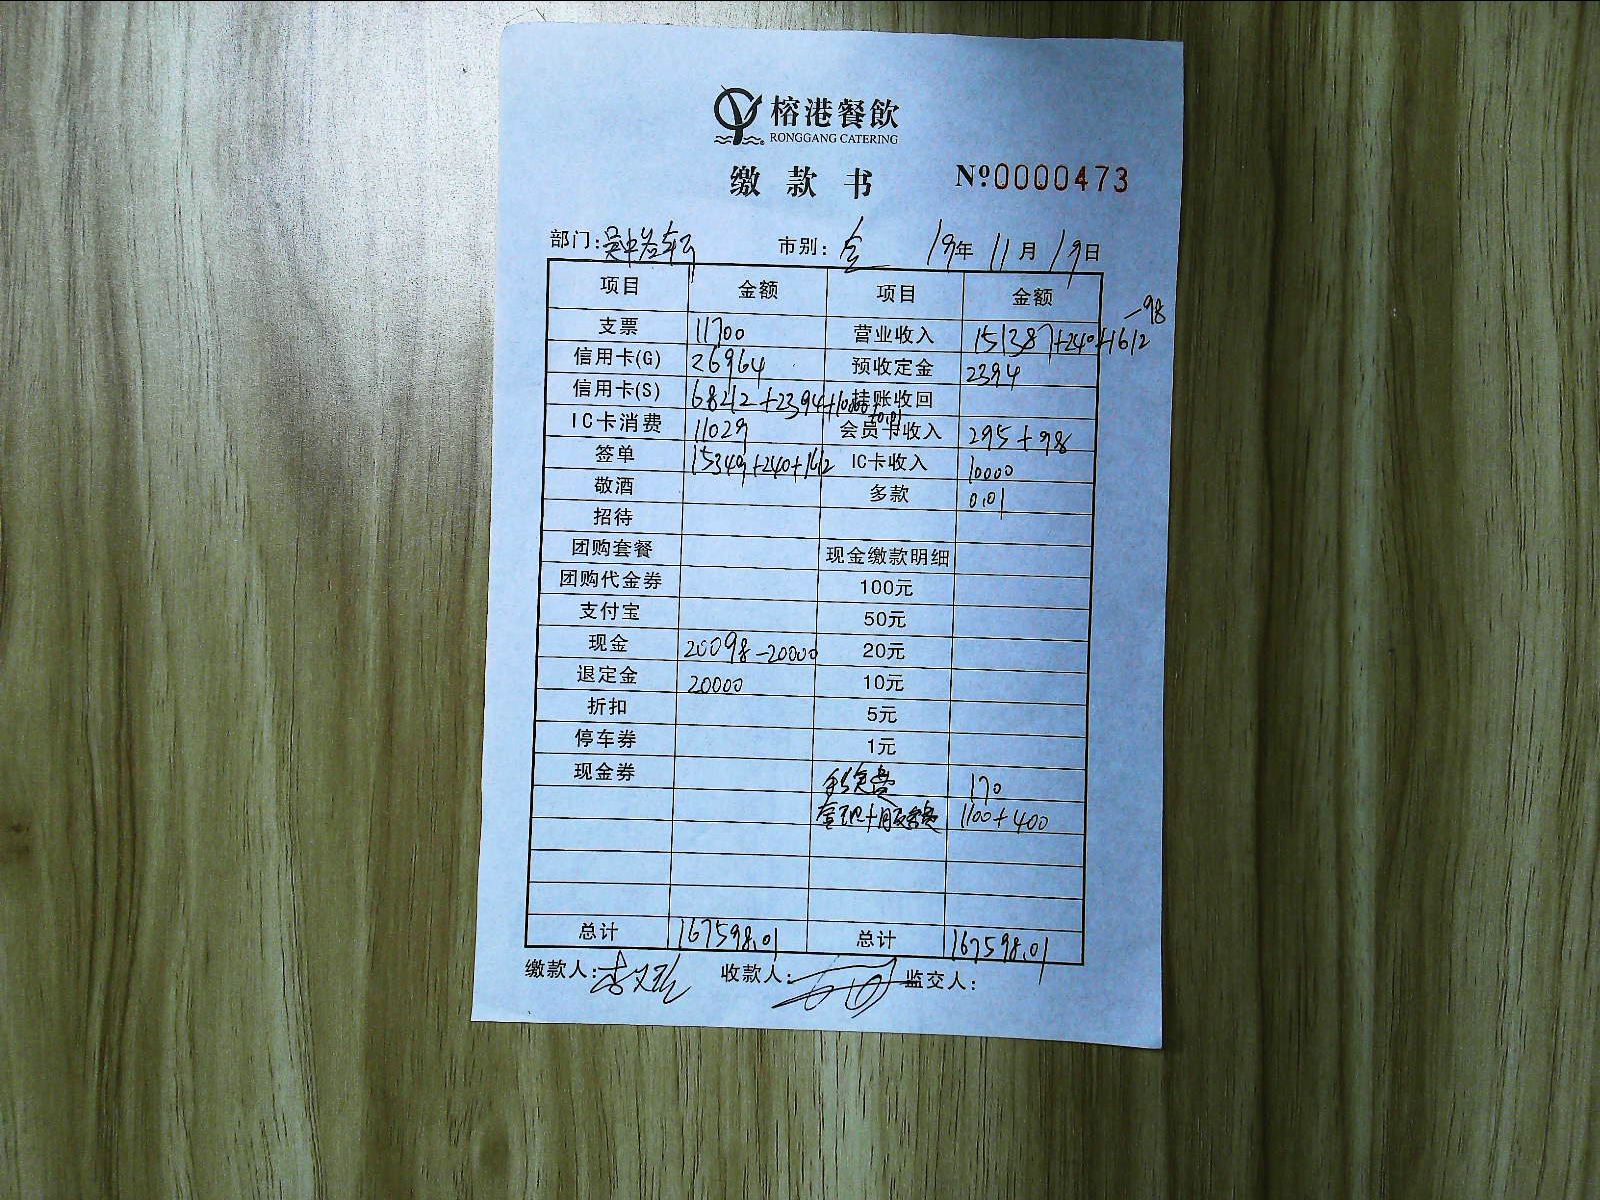 榕港餐飲
RONGGANG CATERING
缴款书 Nº0000473
部门: 市别: 全 19年 11月 19日
项目 金额 项目 金额
支票 11700 营业收入 151387+240+1612-98
信用卡(G) 26964 预收定金 2394
信用卡(S) 68212+2394+10000+0.01 挂账收回
IC卡消费 11029 会员卡收入 295+98
签单 15349+240+1612 IC卡收入 10000
敬酒 多款 0.01
招待
团购套餐 现金缴款明细
团购代金券 100元
支付宝 50元
现金 20098-20000 20元
退定金 20000 10元
折扣 5元
停车券 1元
现金券 170
1100+400
总计 167598.01 总计 167598.01
缴款人: 收款人: 监交人: